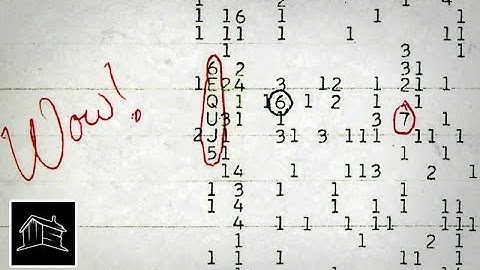 1 16 1 1 1 1
1 1 11
1 3 1
6 2 31
1 E24 3 12 1 21 1
Q 1 16 1 2 1 1 1
Wow!
U31 1 3 7 1
2 J 1 31 3 111 11 1 11 1
51 1 1
14 1 113 2 1
1 3 1 1 1
1 1 1 11
4 1 1 111 11 111
4 1 1 11
1 1 2 1